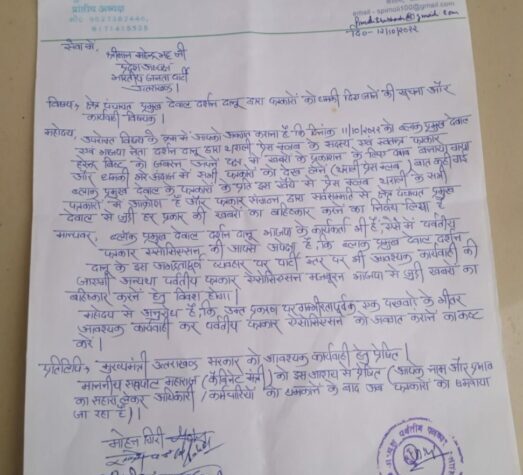 प्रांतीय अध्यक्ष
सेवा में,
श्रीमान महेन्द्र भट्ट जी
प्रदेश अध्यक्ष
भारतीय जनता पार्टी
उत्तराखण्ड।
दि०- 12/10/2022
विषय:- क्षेत्र पंचायत प्रमुख देवाल दर्शन दानू द्वारा पत्रकारों को धमकी दिये जाने की सूचना और
कार्यवाही विषयक।
महोदय, उपरोक्त विषय के क्रम में आपको अवगत कराना है कि दिनांक 11/10/2022 को ब्लाक प्रमुख देवाल
एवं भाजपा नेता दर्शन दानू द्वारा थराली प्रेस क्लब के सदस्य एवं स्वतंत्र पत्रकार
बिष्ट को जबरन अपने पक्ष में खबरों के प्रकाशन के लिए दबाव बनाया गया
और धमकी भरे अंदाज में सभी पत्रकारों को देख लेने (थराली प्रेस क्लब) बात कही गई
ब्लाक प्रमुख देवाल के पत्रकारों के प्रति इस रवैये से प्रेस क्लब थराली के सभी
पत्रकारों में आक्रोश है और पत्रकार संगठन द्वारा सर्वसम्मति से क्षेत्र पंचायत प्रमुख
देवाल से जुड़ी हर प्रकार की खबरों का बहिष्कार करने का निर्णय लिया है
मान्यवर, ब्लाक प्रमुख देवाल दर्शन दानू भाजपा के कार्यकर्ता भी हैं, ऐसे में पर्वतीय
पत्रकार एसोसिएशन की आपसे अपेक्षा है, कि ब्लाक प्रमुख देवाल दर्शन
दानू के इस अभद्रतापूर्ण व्यवहार पर पार्टी स्तर पर भी आवश्यक कार्यवाही की
जाएगी अन्यथा पर्वतीय पत्रकार एसोसिएशन मजबूरन भाजपा से जुड़ी खबरों का
बहिष्कार करने हेतु विवश होगा।
महोदय से अनुरोध है कि उक्त प्रकरण पर गम्भीरतापूर्वक एक पखवाड़े के भीतर
आवश्यक कार्यवाही कर पर्वतीय पत्रकार एसोसिएशन को अवगत कराने का कष्ट
करें।
प्रतिलिपि:- मुख्यमंत्री उत्तराखण्ड सरकार को आवश्यक कार्यवाही हेतु प्रेषित।
माननीय सतपाल महाराज (कैबिनेट मंत्री) को इस आशय से प्रेषित (आपके नाम और प्रभाव
का सहारा लेकर अधिकारी / कर्मचारियों को धमकाने के बाद अब पत्रकारों को धमकाया
जा रहा है)।
मोहन गिरी